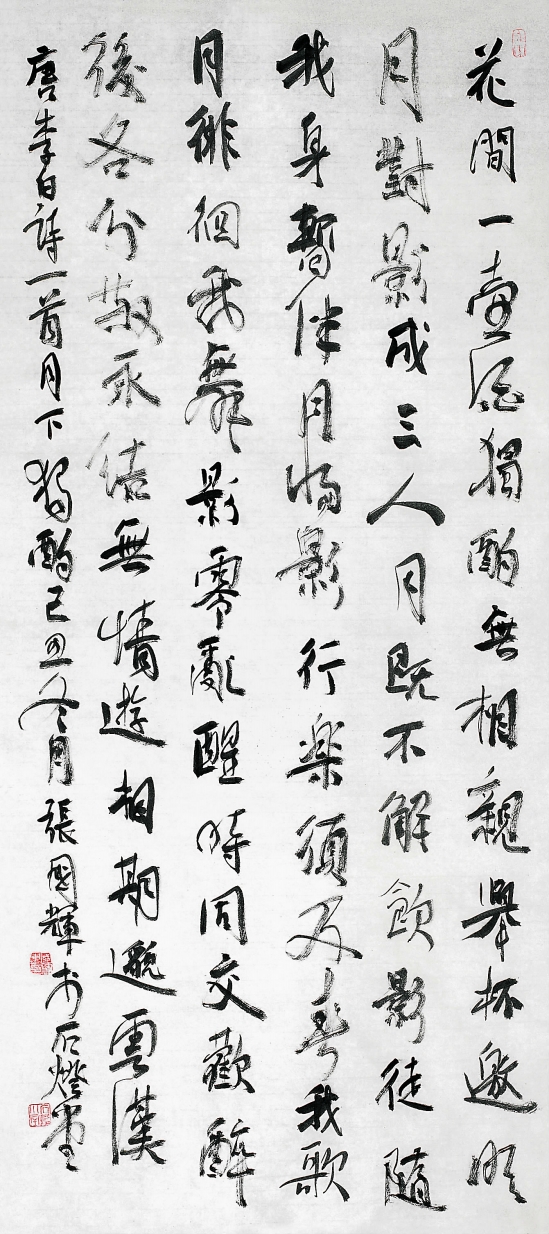 花間一壺酒獨酌無相親舉杯邀明
月對影成三人月既不解飲影徒隨
我身暫伴月將影行楽須及春我歌
月徘徊我舞影零亂醒時同交歡醉
後各分散永結無情遊相期邈雲漢
唐李白詩一首月下獨酌己丑冬月張國輝於石燈堂